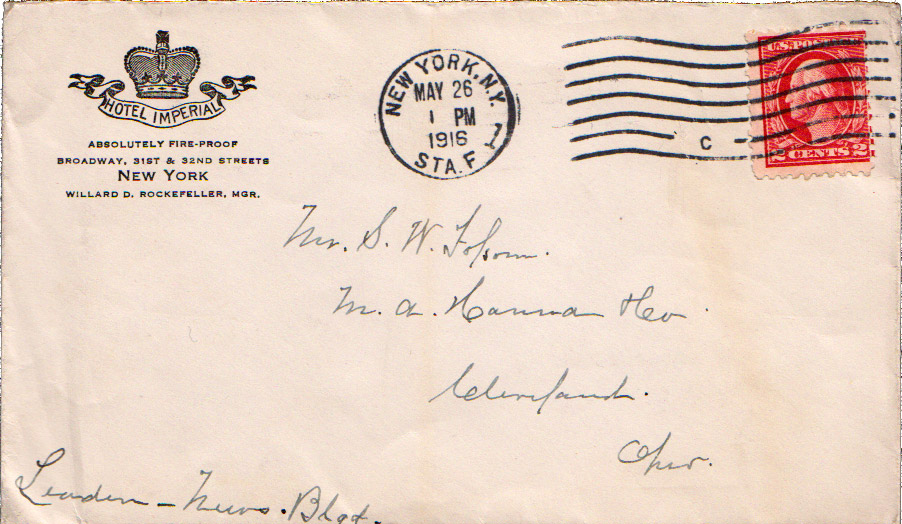 HOTEL IMPERIAL
ABSOLUTELY FIRE-PROOF
BROADWAY, 31ST & 32ND STREETS
NEW YORK
WILLARD D. ROCKEFELLER, MGR.
NEW YORK, N.Y.
MAY 26
1 PM
1916
STA. F
1
C
U.S. POSTAGE
2 CENTS 2
Mr. S. W. Folsom.
M. A. Hanna
Cleveland.
Ohio.
Leader-News. Bldg.